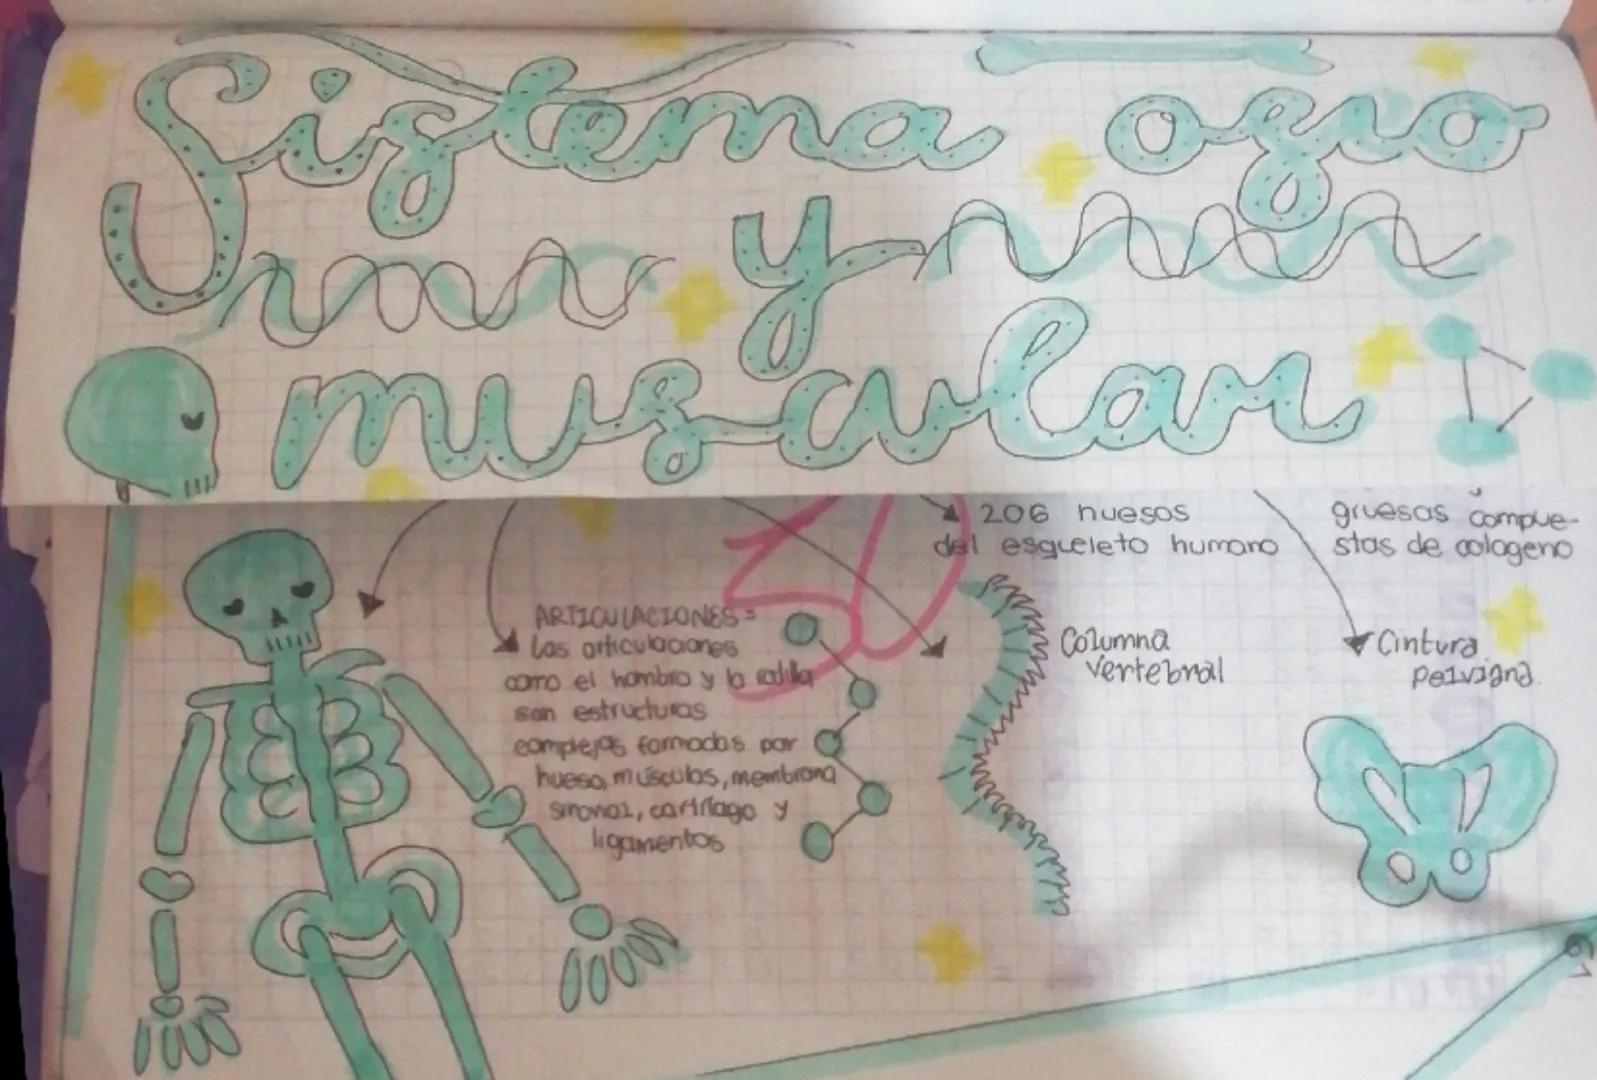 Sistema oseo
y
muscular
206 huesos
del esqueleto humano
gruesas compue-
stas de colageno
ARTICULACIONES=
las articulaciones
como el hombro y la rodilla
son estructuras
complejas formadas por
hueso, músculos, membrana
sinovial, cartílago y
ligamentos
Columna
vertebral
Cintura
50
61